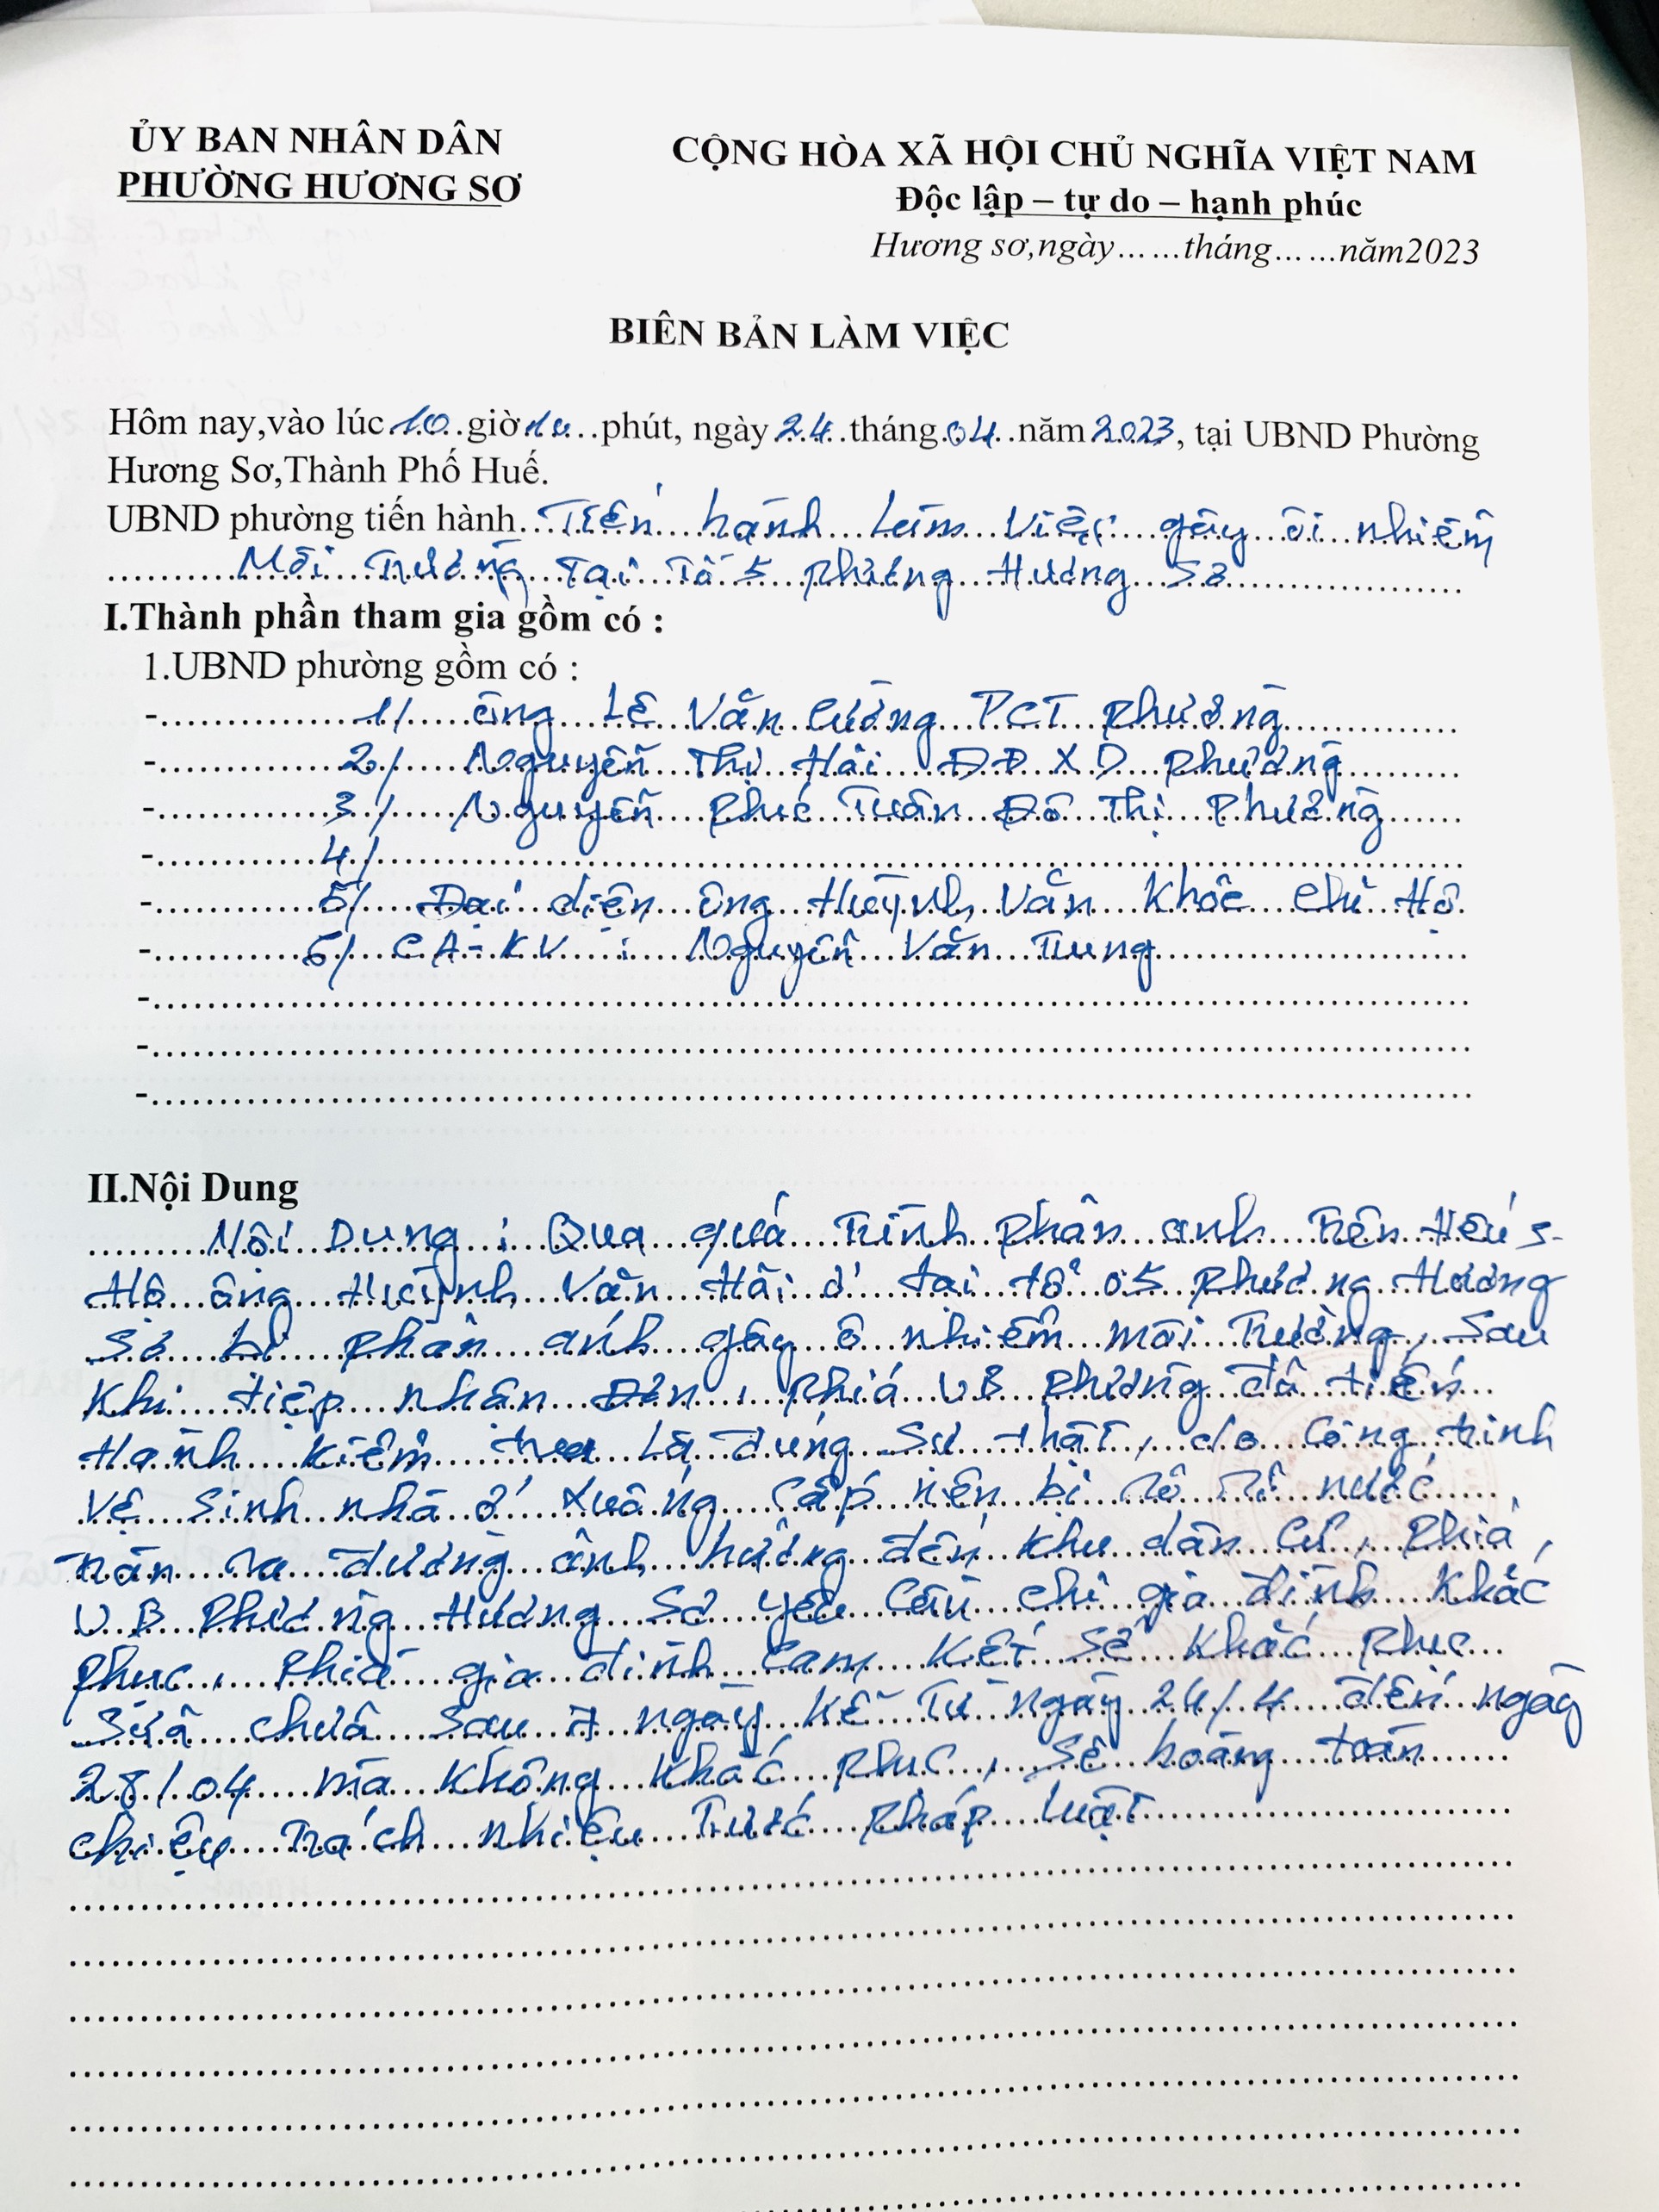 ỦY BAN NHÂN DÂN
PHƯỜNG HƯƠNG SƠ
CỘNG HÒA XÃ HỘI CHỦ NGHĨA VIỆT NAM
Độc lập – tự do – hạnh phúc
Hương sơ,ngày......tháng......năm2023
BIÊN BẢN LÀM VIỆC
Hôm nay,vào lúc 10 giờ 10 phút, ngày 24 tháng 04 năm 2023, tại UBND Phường
Hương Sơ,Thành Phố Huế.
UBND phường tiến hành Tiến hành làm việc gây ôi nhiêm
Môi Trường Tại Tổ 5 phường Hương Sơ
I.Thành phần tham gia gồm có :
1.UBND phường gồm có :
- 1/ ông Lê Văn Cường PCT phường
- 2/ Nguyễn Thị Hải ĐĐ XD phường
- 3/ Nguyễn Phúc Tuân Đô Thị Phường
- 4/
- 5/ Đại diện ông Huỳnh Văn Khôc chủ Hộ
- 6/ CA-KV : Nguyễn Văn Trung
-
-
-
II.Nội Dung
Nội Dung : Qua quá Trình phản anh Trên Hếu s-
Hộ ông Huỳnh Văn Hải ở tại tổ 05 phường Hương
Sơ bị phản ánh gây ô nhiễm môi Trường, Sau
Khi tiệp nhận Đơn, phiá UB phường đã tiến
Hành kiểm tra là đúng sự thật, do Công trình
Vệ sinh nhà ở xuống cấp nên bị rò rỉ nước
ra đường ảnh hưởng đến khu dân cư, Phiá
UB Phường Hương Sơ yêu cầu chỉ gia đình Khắc
phục, Phiá gia đình Cam Kết sẽ khắc phục
Sửa chửa sau 7 ngày kể Từ ngày 24/4 đến ngày
28/04 mà không khắc phục, sẽ hoàng toàn
chiệu Trách nhiệu Trước Pháp luật